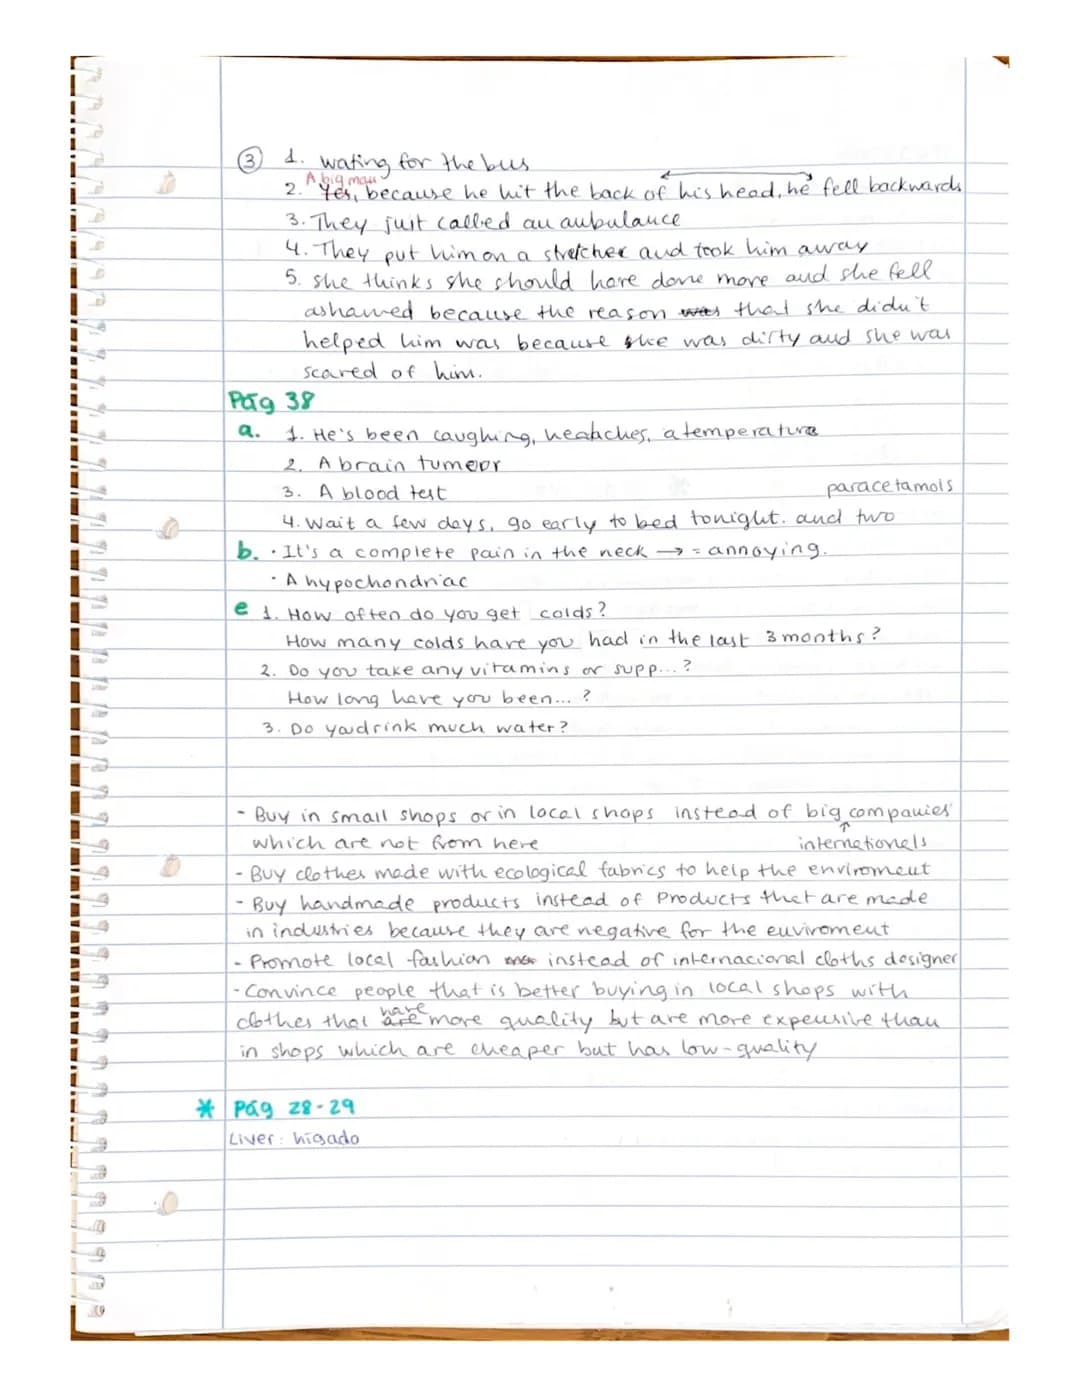 ③ 1. wating for the bus
A big man
2. Yes, because he hit the back of his head, he fell backwards
3. They just called an aubulance
4. They put him on a stretcher and took him away
5. she thinks she should have done more and she fell
ashamed because the reason was that she didn't
helped him was because she was dirty and she was
scared of him.
Pág 38
a. 1. He's been caughing, headches, a temperature
2. A brain tumeor
3. A blood test
paracetamols
4. Wait a few days, go early to bed tonight. and two
b. · It's a complete pain in the neck → = annoying.
· A hypochondriac
e 1. How often do you get colds?
How many colds have you had in the last 3 months?
2. Do you take any vitamins or supp...?
How long have you been... ?
3. Do you drink much water?
- Buy in small shops or in local shops instead of big companies
which are not from here ↑ internationals
- Buy clothes made with ecological fabrics to help the enviroment
- Buy handmade products instead of Products that are made
in industries because they are negative for the euviroment
- Promote local fashion instead of internacional cloths designer
- Convince people that is better buying in local shops with
have
clothes that are more quality but are more expensive than
in shops which are cheaper but has low-quality
* Pág 28-29
Liver: hígado